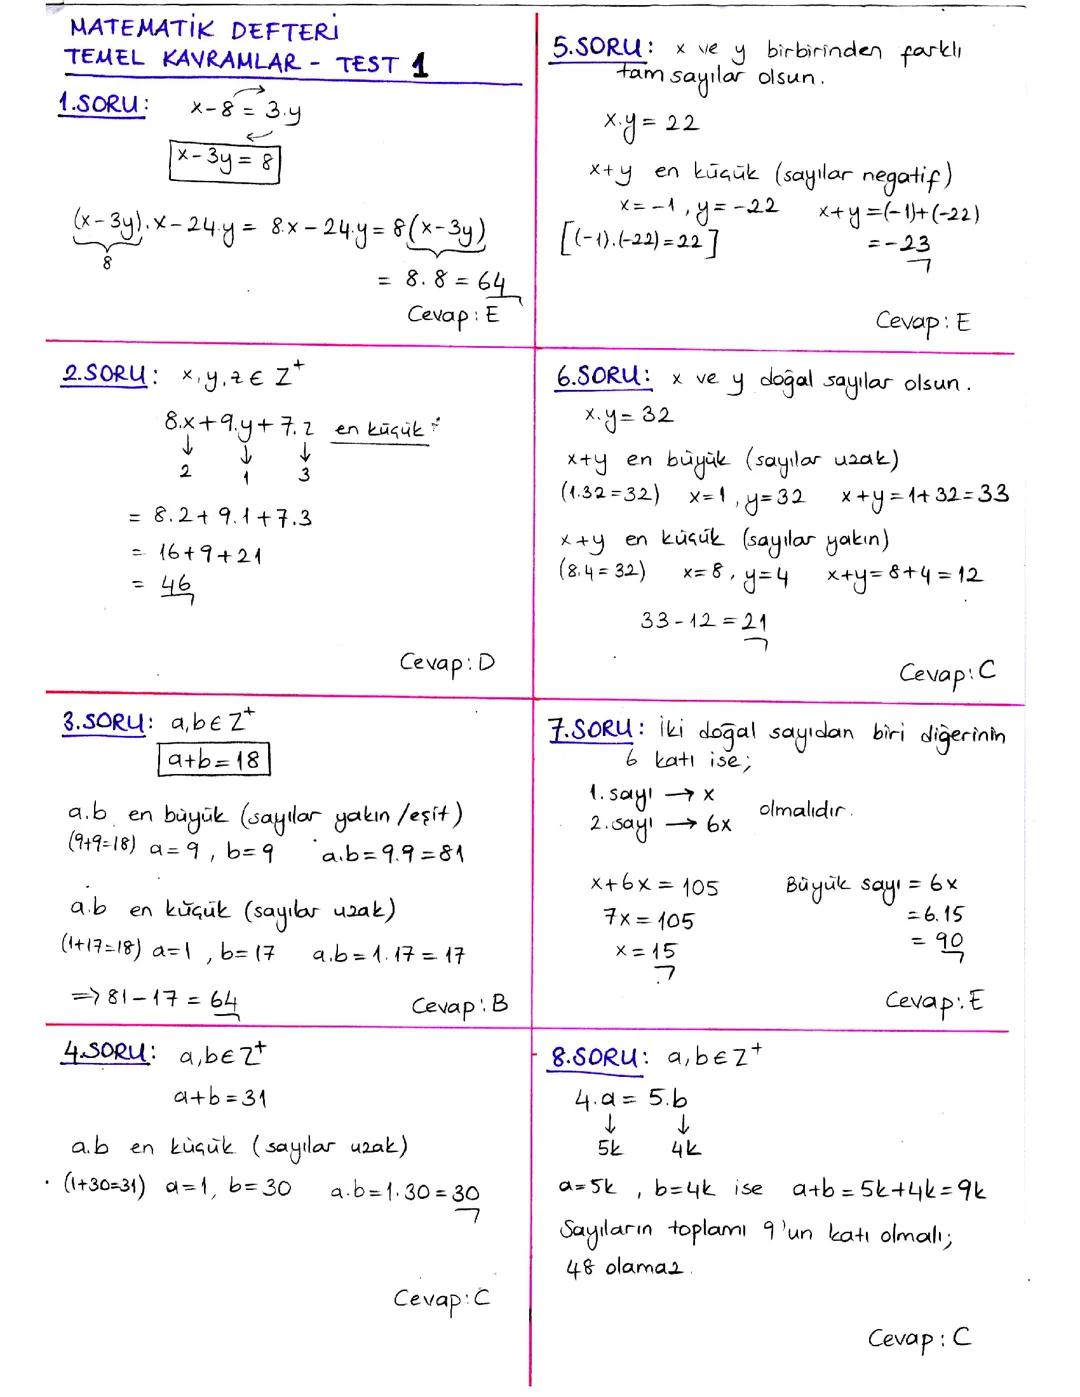 MATEMATİK DEFTERİ
TEMEL KAVRAMLAR - TEST 1
1.SORU: x-8 = 3.y
x-3y = 8
(x-3y).x-24.y = 8.x-24.y = 8(x-3y)
8
= 8.8 = 64
Cevap: E
2.SORU: x,y,z ∈ Z⁺
8.x+9.y+7.z en küçük?
↓ ↓ ↓
2 1 3
= 8.2+9.1+7.3
= 16+9+21
= 46
Cevap: D
3.SORU: a,b ∈ Z⁺
a+b=18
a.b en büyük (sayılar yakın/eşit)
(9+9=18) a=9, b=9 a.b=9.9=81
a.b en küçük (sayılar uzak)
(1+17=18) a=1, b=17 a.b=1.17=17
⇒ 81-17 = 64
Cevap: B
4.SORU: a,b ∈ Z⁺
a+b=31
a.b en küçük (sayılar uzak)
(1+30=31) a=1, b=30 a.b=1.30=30
Cevap: C
5.SORU: x ve y birbirinden farklı
tam sayılar olsun.
x.y = 22
x+y en küçük (sayılar negatif)
x=-1, y=-22 x+y=(-1)+(-22)
[(-1).(-22)=22] =-23
Cevap: E
6.SORU: x ve y doğal sayılar olsun.
x.y=32
x+y en büyük (sayılar uzak)
(1.32=32) x=1, y=32 x+y=1+32=33
x+y en küçük (sayılar yakın)
(8.4=32) x=8, y=4 x+y=8+4=12
33-12=21
Cevap: C
7.SORU: İki doğal sayıdan biri diğerinin
6 katı ise;
1. sayı → x
olmalıdır.
2. sayı → 6x
x+6x = 105 Büyük sayı = 6x
7x = 105 =6.15
x = 15 = 90
Cevap: E
8.SORU: a,b ∈ Z⁺
4.a = 5.b
↓ ↓
5k 4k
a=5k, b=4k ise a+b=5k+4k=9k
Sayıların toplamı 9'un katı olmalı;
48 olamaz.
Cevap: C